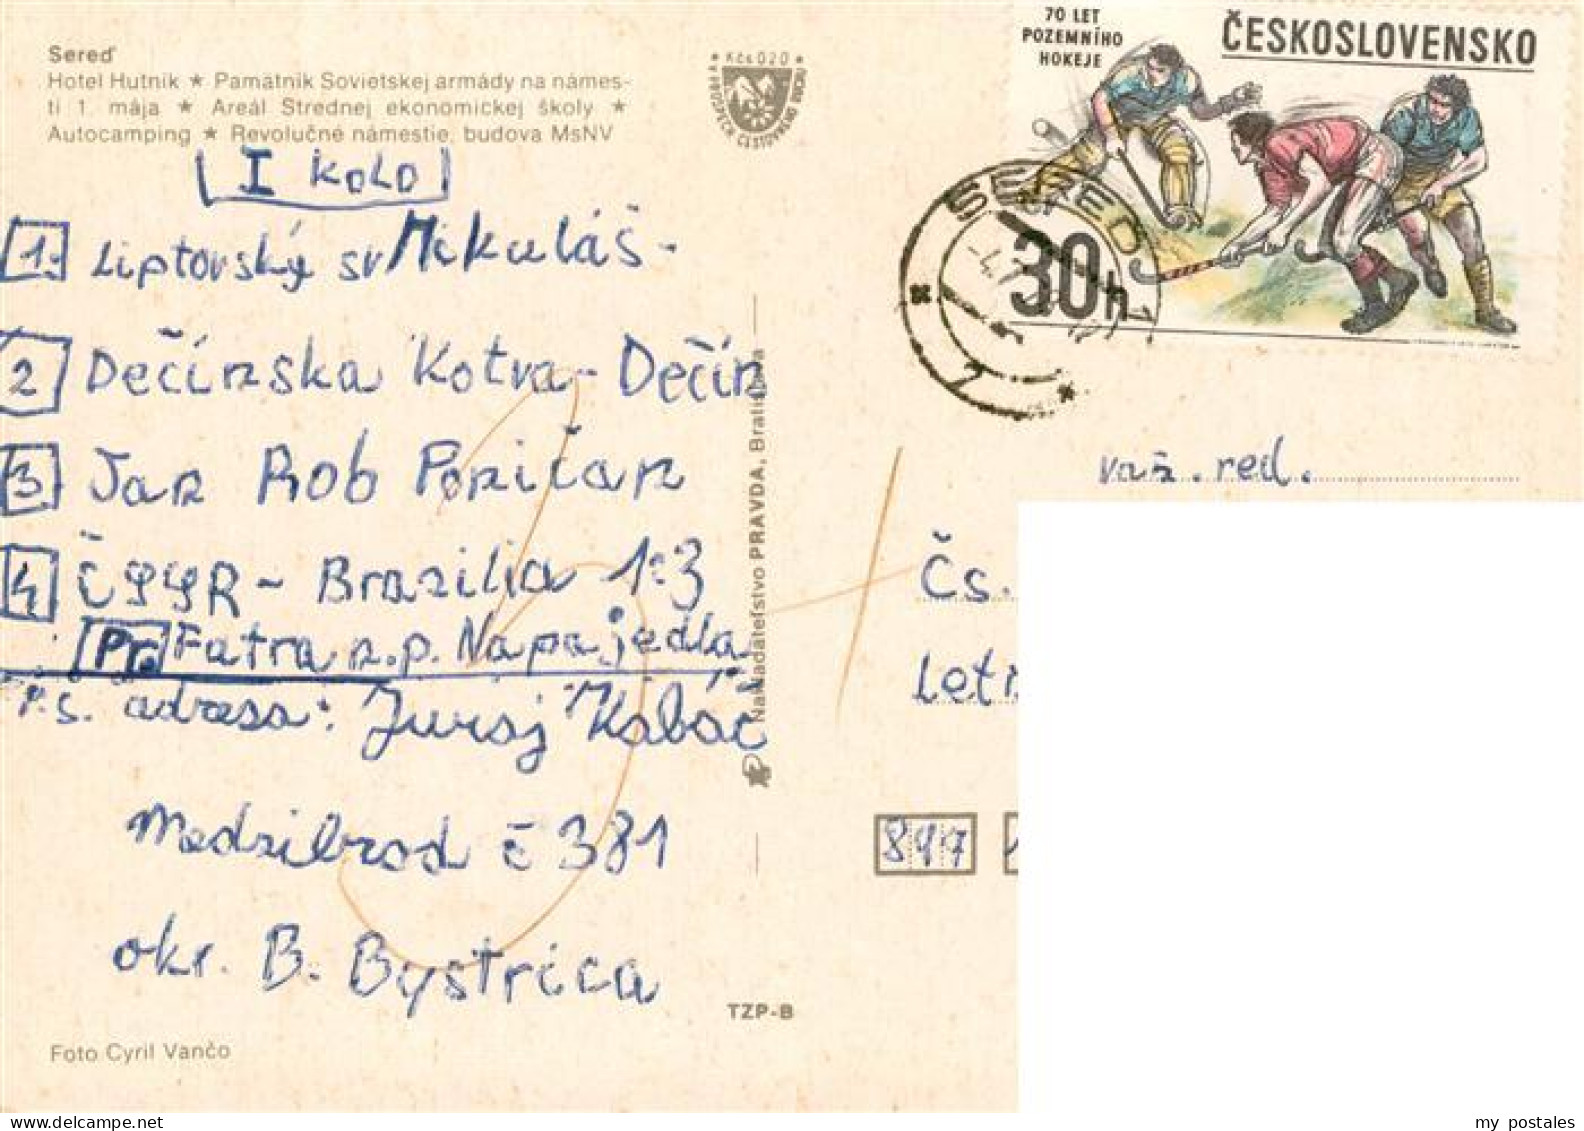 Sereď
Hotel Hutník ★ Pamätník Sovietskej armády na námes-
tí 1. mája ★ Areál Strednej ekonomickej školy ★
Autocamping ★ Revolučné námestie, budova MsNV
Kčs 0,20
V PROSPECH CESTOVNÉHO RUCHU
70 LET
POZEMNÍHO
HOKEJE
ČESKOSLOVENSKO
30h
SEREĎ 1
I KOLO
1. Liptovský sv Mikuláš -
2 Dečínska Kotva - Dečín
3 Jan Rob Poričan
4 ČSSR - Brazilia 1:3
Pr. Fatra n.p. Napajedla
P.S. adresa: Juraj Kabáč
Medzibrod č 381
okr. B. Bystrica
Nakladateľstvo PRAVDA, Bratislava
TZP-B
Foto Cyril Vančo
važ. red.
Čs.
Let
847
my postales